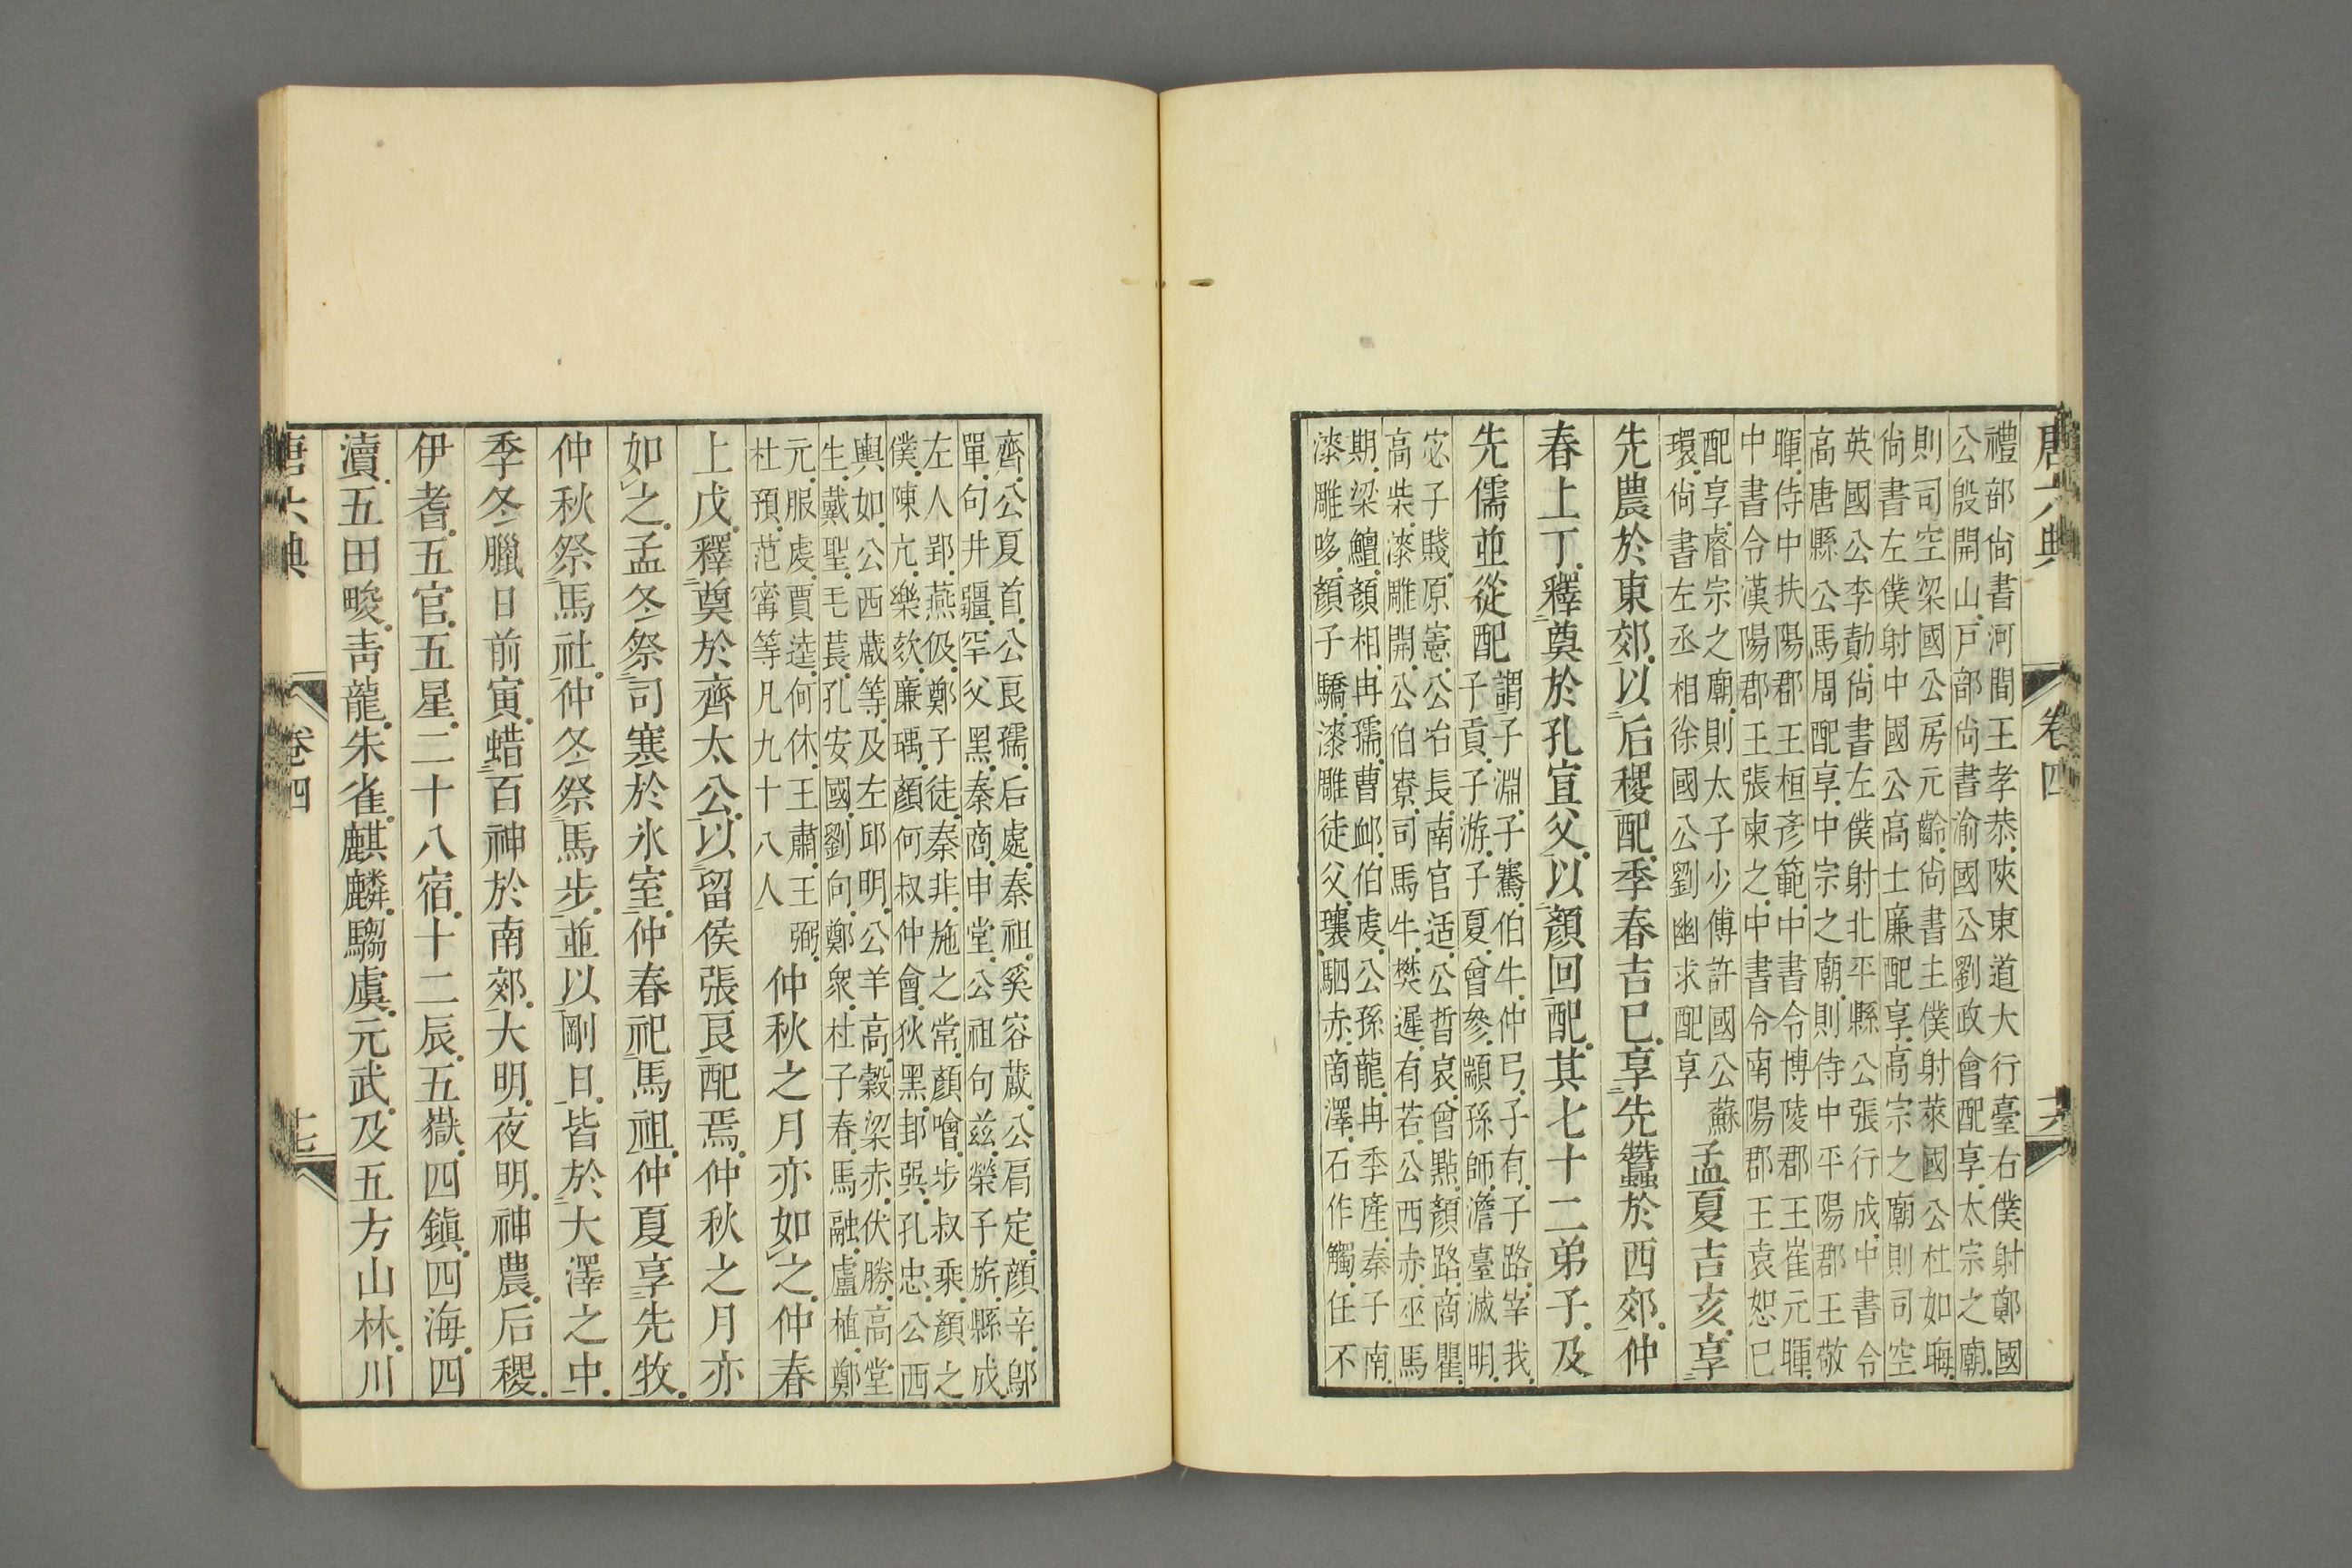 唐六典 卷四 十六
禮部尚書河間王孝恭陝東道大行臺右僕射鄭國
公殷開山戶部尚書渝國公劉政會配享太宗之廟
則司空梁國公房元齡尚書主僕射萊國公杜如晦
尚書左僕射申國公高士廉配享高宗之廟則司空
英國公李勣尚書左僕射北平縣公張行成中書令
高唐縣公馬周配享中宗之廟則侍中平陽郡王敬
暉侍中扶陽郡王桓彥範中書令博陵郡王崔元暐
中書令漢陽郡王張柬之中書令南陽郡王袁恕己
配享睿宗之廟則太子少傅許國公蘇
環尚書左丞相徐國公劉幽求配享
孟夏吉亥享
先農於東郊以后稷配季春吉巳享先蠶於西郊仲
春上丁釋奠於孔宣父以顏回配其七十二弟子及
先儒並從配
謂子淵子騫伯牛仲弓子有子路宰我
子貢子游子夏曾參顓孫師澹臺滅明
宓子賤原憲公冶長南宮适公晳哀曾點顏路商瞿
高柴漆雕開公伯寮司馬牛樊遲有若公西赤巫馬
期梁鱣顏相冉孺曹卹伯虔公孫龍冉季產秦子南
漆雕哆顏子驕漆雕徒父壤駟赤商澤石作觸任不
齊公夏首公良孺后處秦祖奚容蒧公肩定顏辛鄔
單句井疆罕父黑秦商申堂公祖句茲榮子旂縣成
左人郢燕伋鄭子徒秦非施之常顏噲步叔乘顏之
僕陳亢樂欬廉瑀顏何叔仲會狄黑邽巽孔忠公西
輿如公西蒧等及左邱明公羊高穀梁赤伏勝高堂
生戴聖毛萇孔安國劉向鄭衆杜子春馬融盧植鄭
元服虔賈逵何休王肅王弼
杜預范甯等凡九十八人
仲秋之月亦如之仲春
上戊釋奠於齊太公以留侯張良配焉仲秋之月亦
如之孟冬祭司寒於氷室仲春祀馬祖仲夏享先牧
仲秋祭馬社仲冬祭馬步並以剛日皆於大澤之中
季冬臘日前寅蜡百神於南郊大明夜明神農后稷
伊耆五官五星二十八宿十二辰五嶽四鎮四海四
瀆五田畯靑龍朱雀麒麟騶虞元武及五方山林川
唐六典 卷四 十七